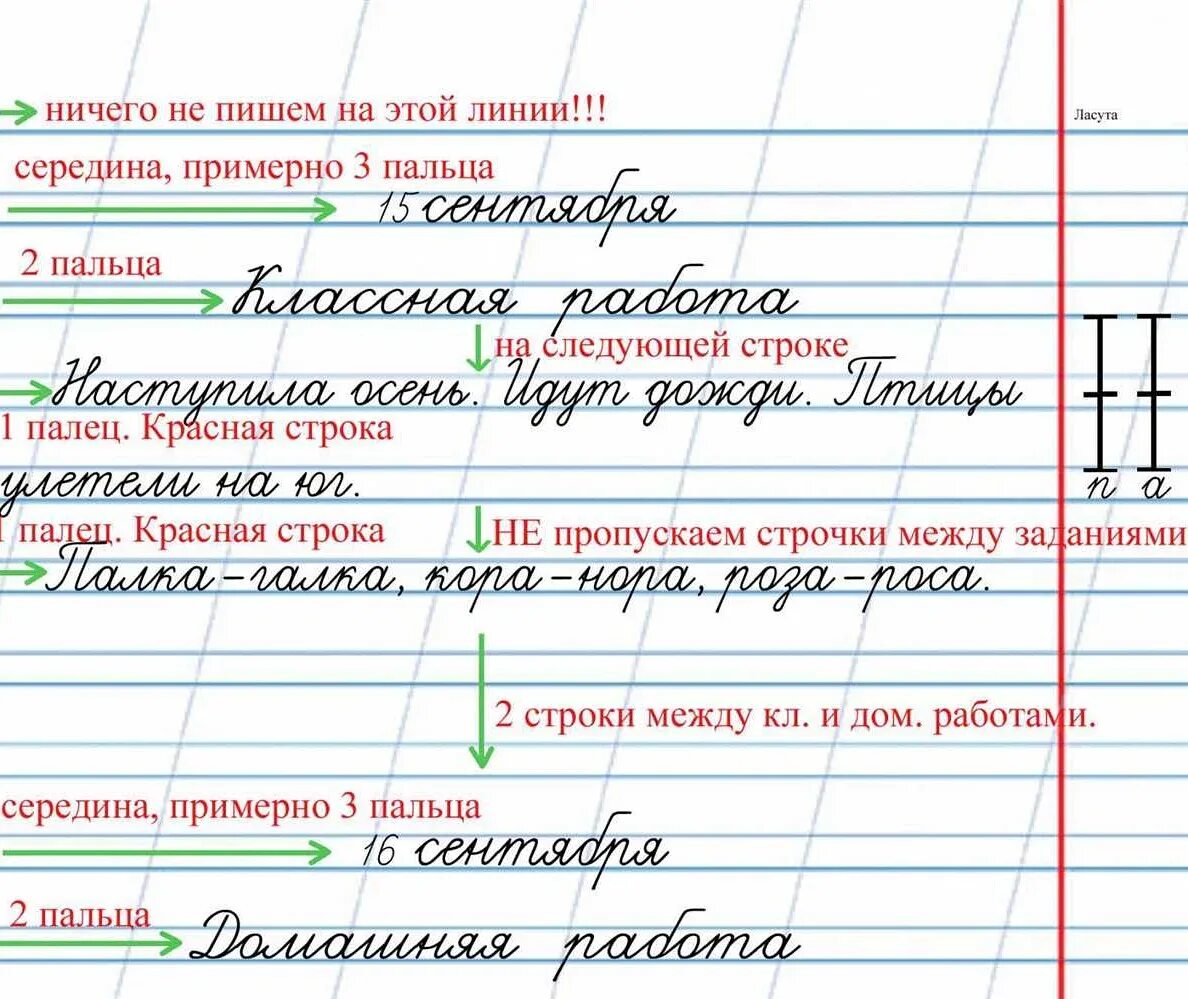 ничего не пишем на этой линии!!!
Ласута
середина, примерно 3 пальца
15 сентября
2 пальца
Классная работа
на следующей строке
Наступила осень. Идут дожди. Птицы
1 палец. Красная строка
улетели на юг.
п а
1 палец. Красная строка
НЕ пропускаем строчки между заданиями
Палка – галка, кора – нора, роза – роса.
2 строки между кл. и дом. работами.
середина, примерно 3 пальца
16 сентября
2 пальца
Домашняя работа